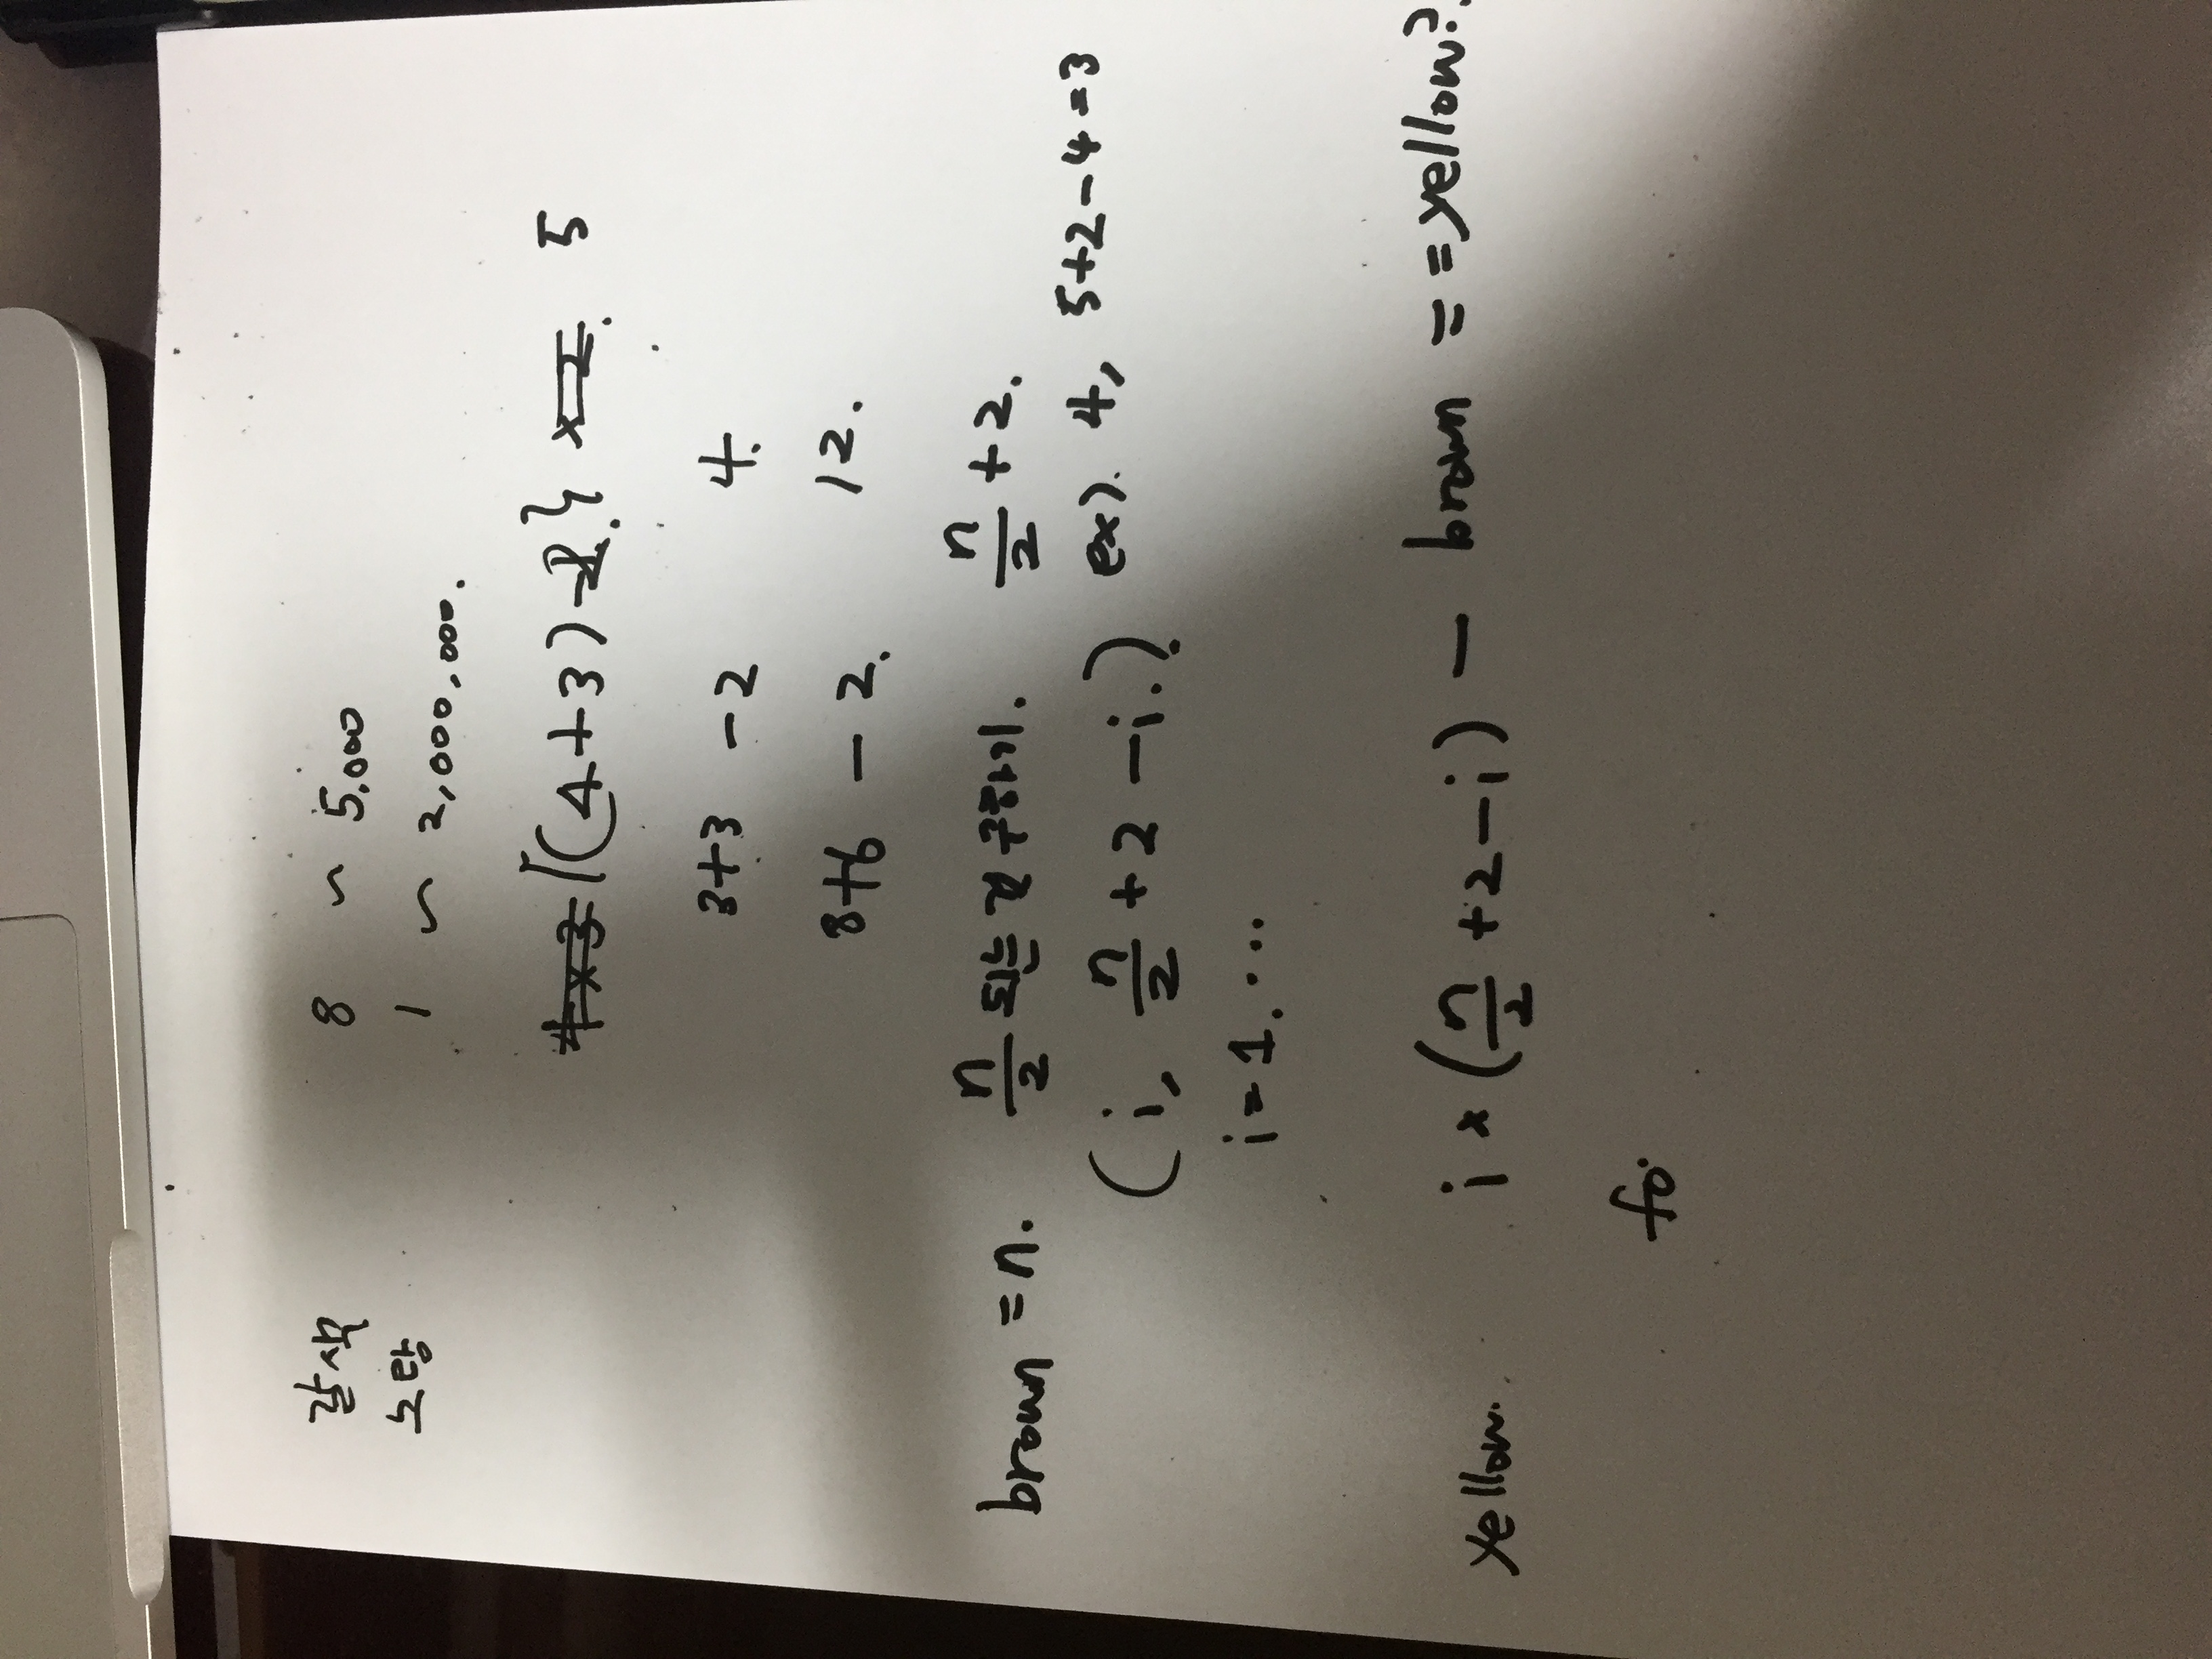 갈색 8 ~ 5,000
노랑 1 ~ 2,000,000.
4×3 {(4+3)-2.} ×2. 5
3+3 -2 4.
8+6 - 2. 12.
brown = n. n/2 되는 것 구하기. n/2 + 2.
(i, n/2 + 2 - i.) ex). 4, 5+2-4=3
i = 1. ...
yellow. i × (n/2 + 2 - i) - brown == yellow?.
fo